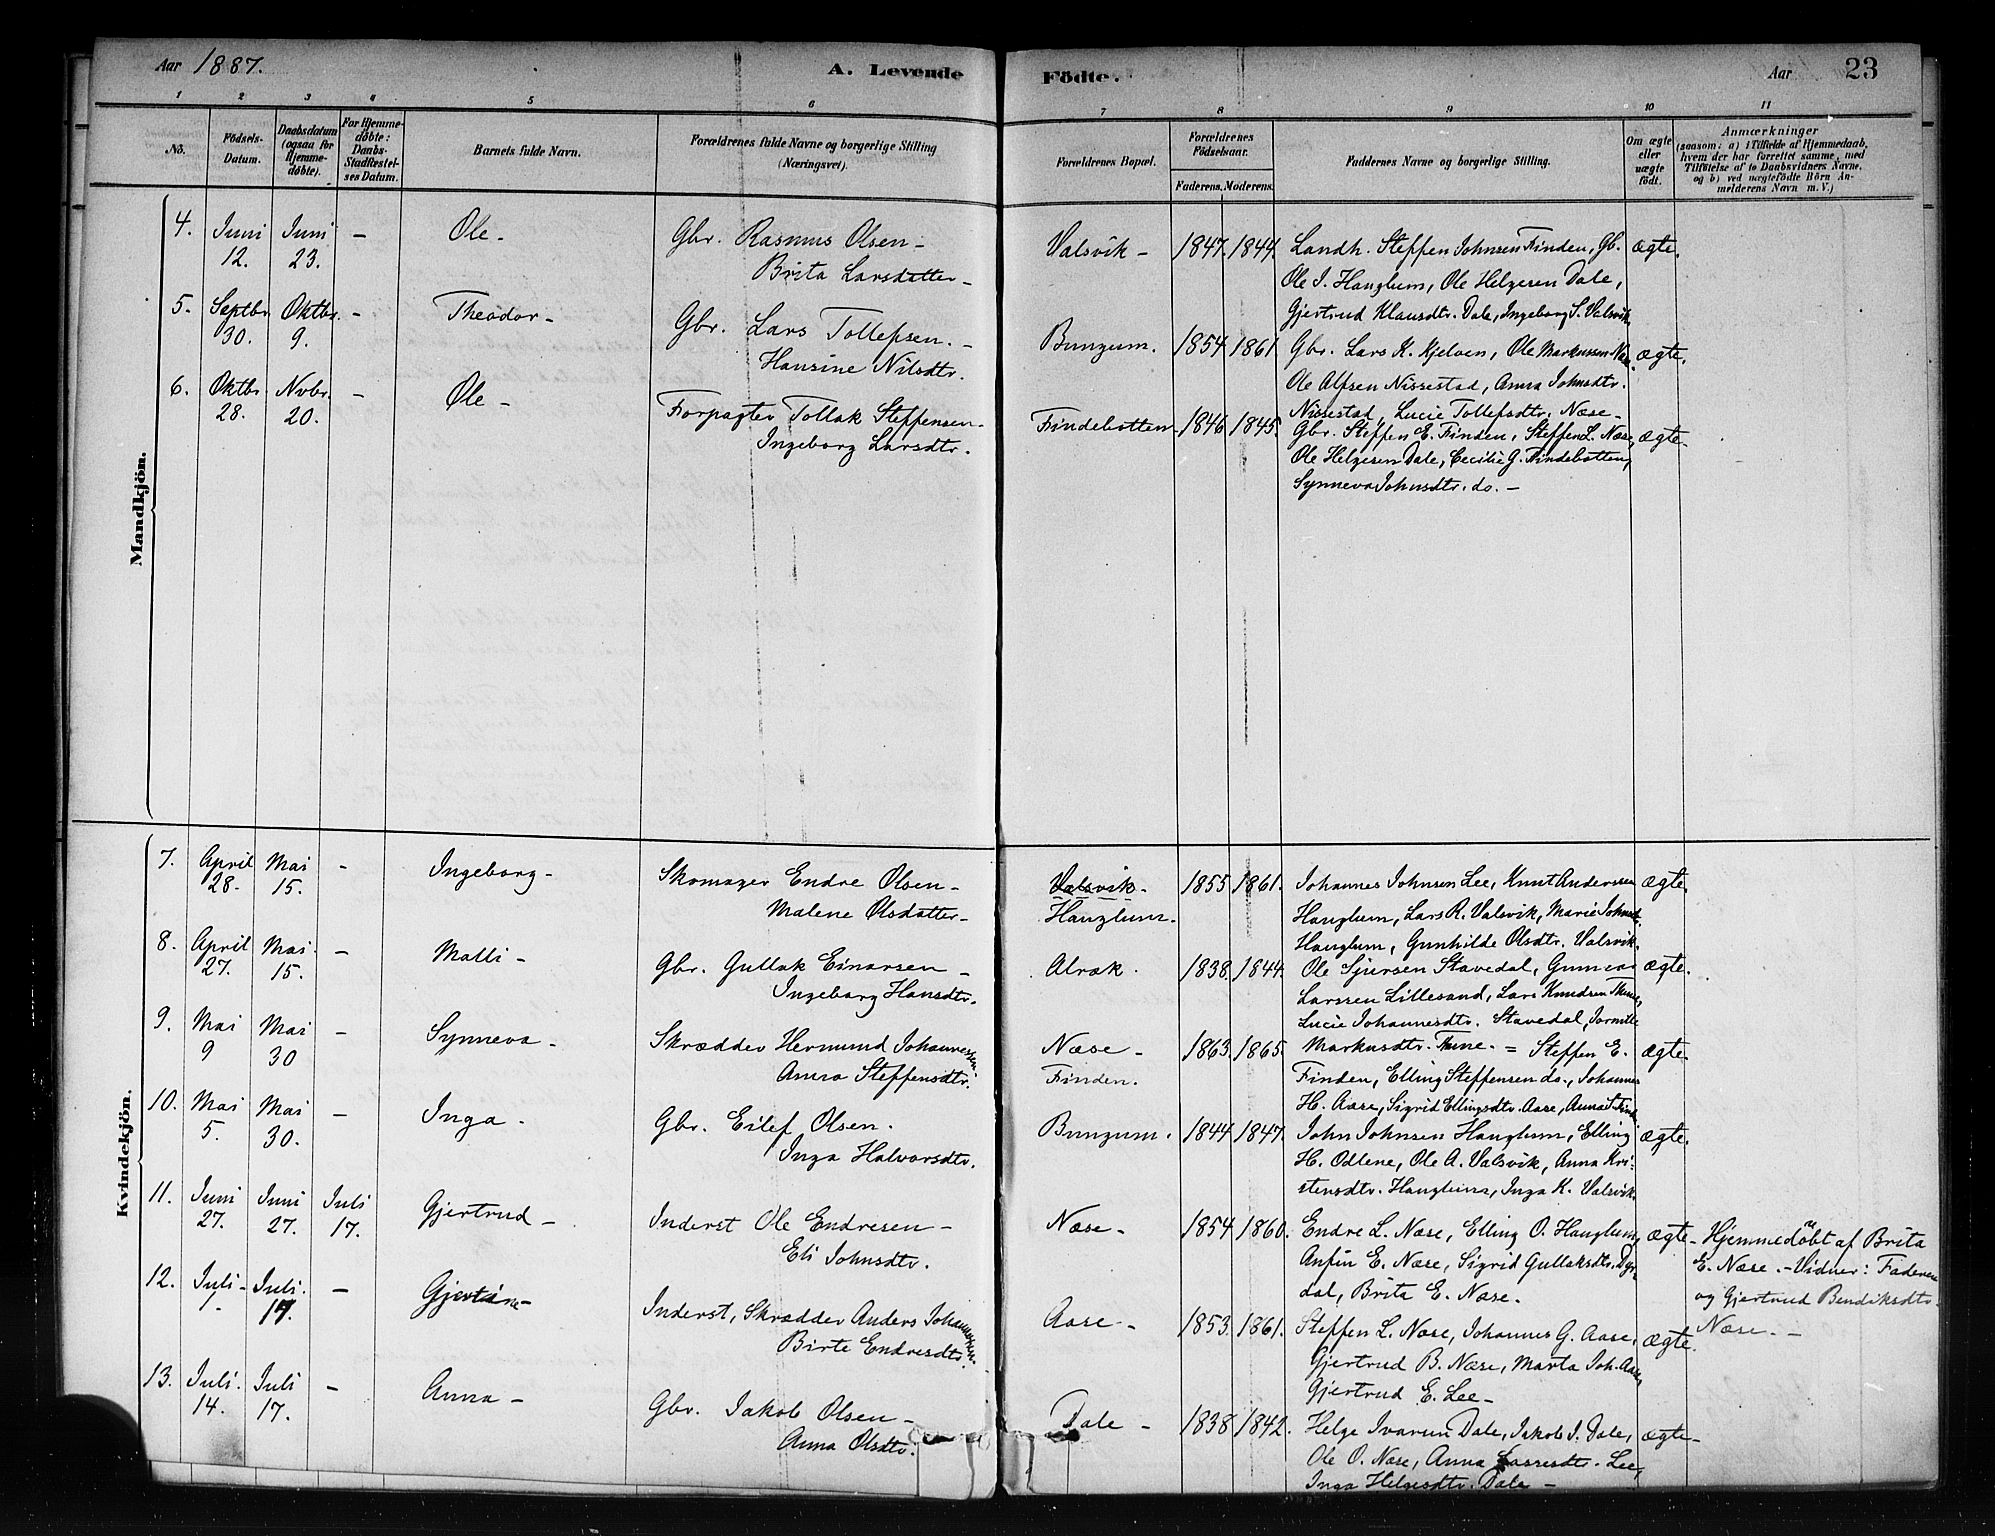 Aar 1887.
A. Levende Födte.
Aar 23
1 2 3 4 5 6 7 8 9 10 11
No.
Födsels-Datum.
Daabsdatum (ogsaa for Hjemme-döbte).
For Hjemme-döbte: Daabs-Stadfæstel-ses Datum.
Barnets fulde Navn.
Forældrenes fulde Navne og borgerlige Stilling (Næringsvei).
Forældrenes Bopæl.
Forældrenes Födselsaar.
Faderens. Moderens.
Faddernes Navne og borgerlige Stilling.
Om ægte eller uægte födt.
Anmærkninger
(saasom: a) i Tilfælde af Hjemmedaab,
hvem der har forrettet samme, med
Tilföielse af to Daabsvidners Navne,
og b) ved uægtefödte Börn An-
melderens Navn m. V.)
Mandkjön.
4. Juni 12. Juni 23. — Ole — Gbr. Rasmus Olsen — Valsvik — 1847. 1844. Landh. Steffen Johnsen Finden, Gb. ægte.
Brita Larsdatter — Ole J. Hanglum, Ole Helgesen Dale,
Gjertrud Klausdtr. Dale, Ingeborg S. Valsvik
5. Septbr. 30. Oktbr. 9. — Theodor — Gbr. Lars Tollefsen. — Bungum. 1854. 1861 Gbr. Lars K. Kjelven, Ole Markussen ægte.
Hansine Nilsdtr. Ole Alfsen Nissestad, Anna Johnsdtr.
Nissestad, Lucie Tollefsdtr. Næse —
6. Oktbr. 28. Novbr. 20. — Ole — Forpagter Tollak Steffensen — Findebotten — 1846. 1845. Gbr. Steffen E. Finden, Steffen L. Næse, ægte.
Ingeborg Larsdtr. Ole Helgesen Dale, Cecilie G. Findebotten,
Synneva Johnsdtr. do. —
Kvindekjön.
7. April 28. Mai 15. — Ingeborg — Skomager Endre Olsen — Valsvik — 1855. 1861. Johannes Johnsen Lee, Knut Anderssen ægte.
Malene Olsdatter — Hanglum. Hanglum, Lars R. Valsvik, Marie
Hanglum, Gunhilde Olsdtr. Valsvik.
8. April 27. Mai 15. — Malli — Gbr. Gullak Einarsen — Alrek. 1838. 1844. Ole Sjursen Stavedal, Gunvar ægte.
Ingeborg Hansdtr. Larssen Lillesand, Lars Knudsen
Lucie Johannesdtr. Stavedal,
9. Mai 9 Mai 30 — Synneva — Skrædder Hermund Johannessen Næse — 1863. 1865. Markusdtr. = Steffen E. ægte.
Anna Steffensdtr. Finden. Finden, Elling Steffensen do., Johannes
H. Aase, Sigrid Ellingsdtr. Aase, Anna
10. Mai 5. Mai 30. — Inga — Gbr. Eilef Olsen. Bungum. 1844. 1847. John Johnsen Hanglum, Elling ægte.
Inga Halvorsdtr. H. Odlene, Ole A. Valsvik, Anna Kri-
stensdtr. Hanglum, Inga K. Valsvik.
11. Juni 27. Juni 27. Juli 17. Gjertrud — Inderst Ole Endresen — Næse — 1854. 1860. Endre L. Næse, Elling O. Hanglum, ægte — Hjemmedöbt af Brita
Eli Johnsdtr. Anfin E. Næse, Sigrid Gullaksdtr. E. Næse. — Vidner: Faderen
dal, Brita E. Næse. og Gjertrud Bendiksdtr.
Næse. —
12. Juli 1 Juli 17. — Gjertine — Inderst, Skrædder Anders Johannessen. Aase — 1853. 1861. Steffen L. Næse, Johannes G. Aase, ægte.
Birte Endresdtr. Gjertrud B. Næse, Marta Joh. Aase
Gjertrud E. Lee —
13. Juli 14. Juli 17. — Anna — Gbr. Jakob Olsen — Dale — 1838. 1842. Helge Dale, Jakob J. Dale, ægte —
Anna Olsdtr. Ole O. Næse, Anna Lee,
Inga Helgesdtr. Dale —